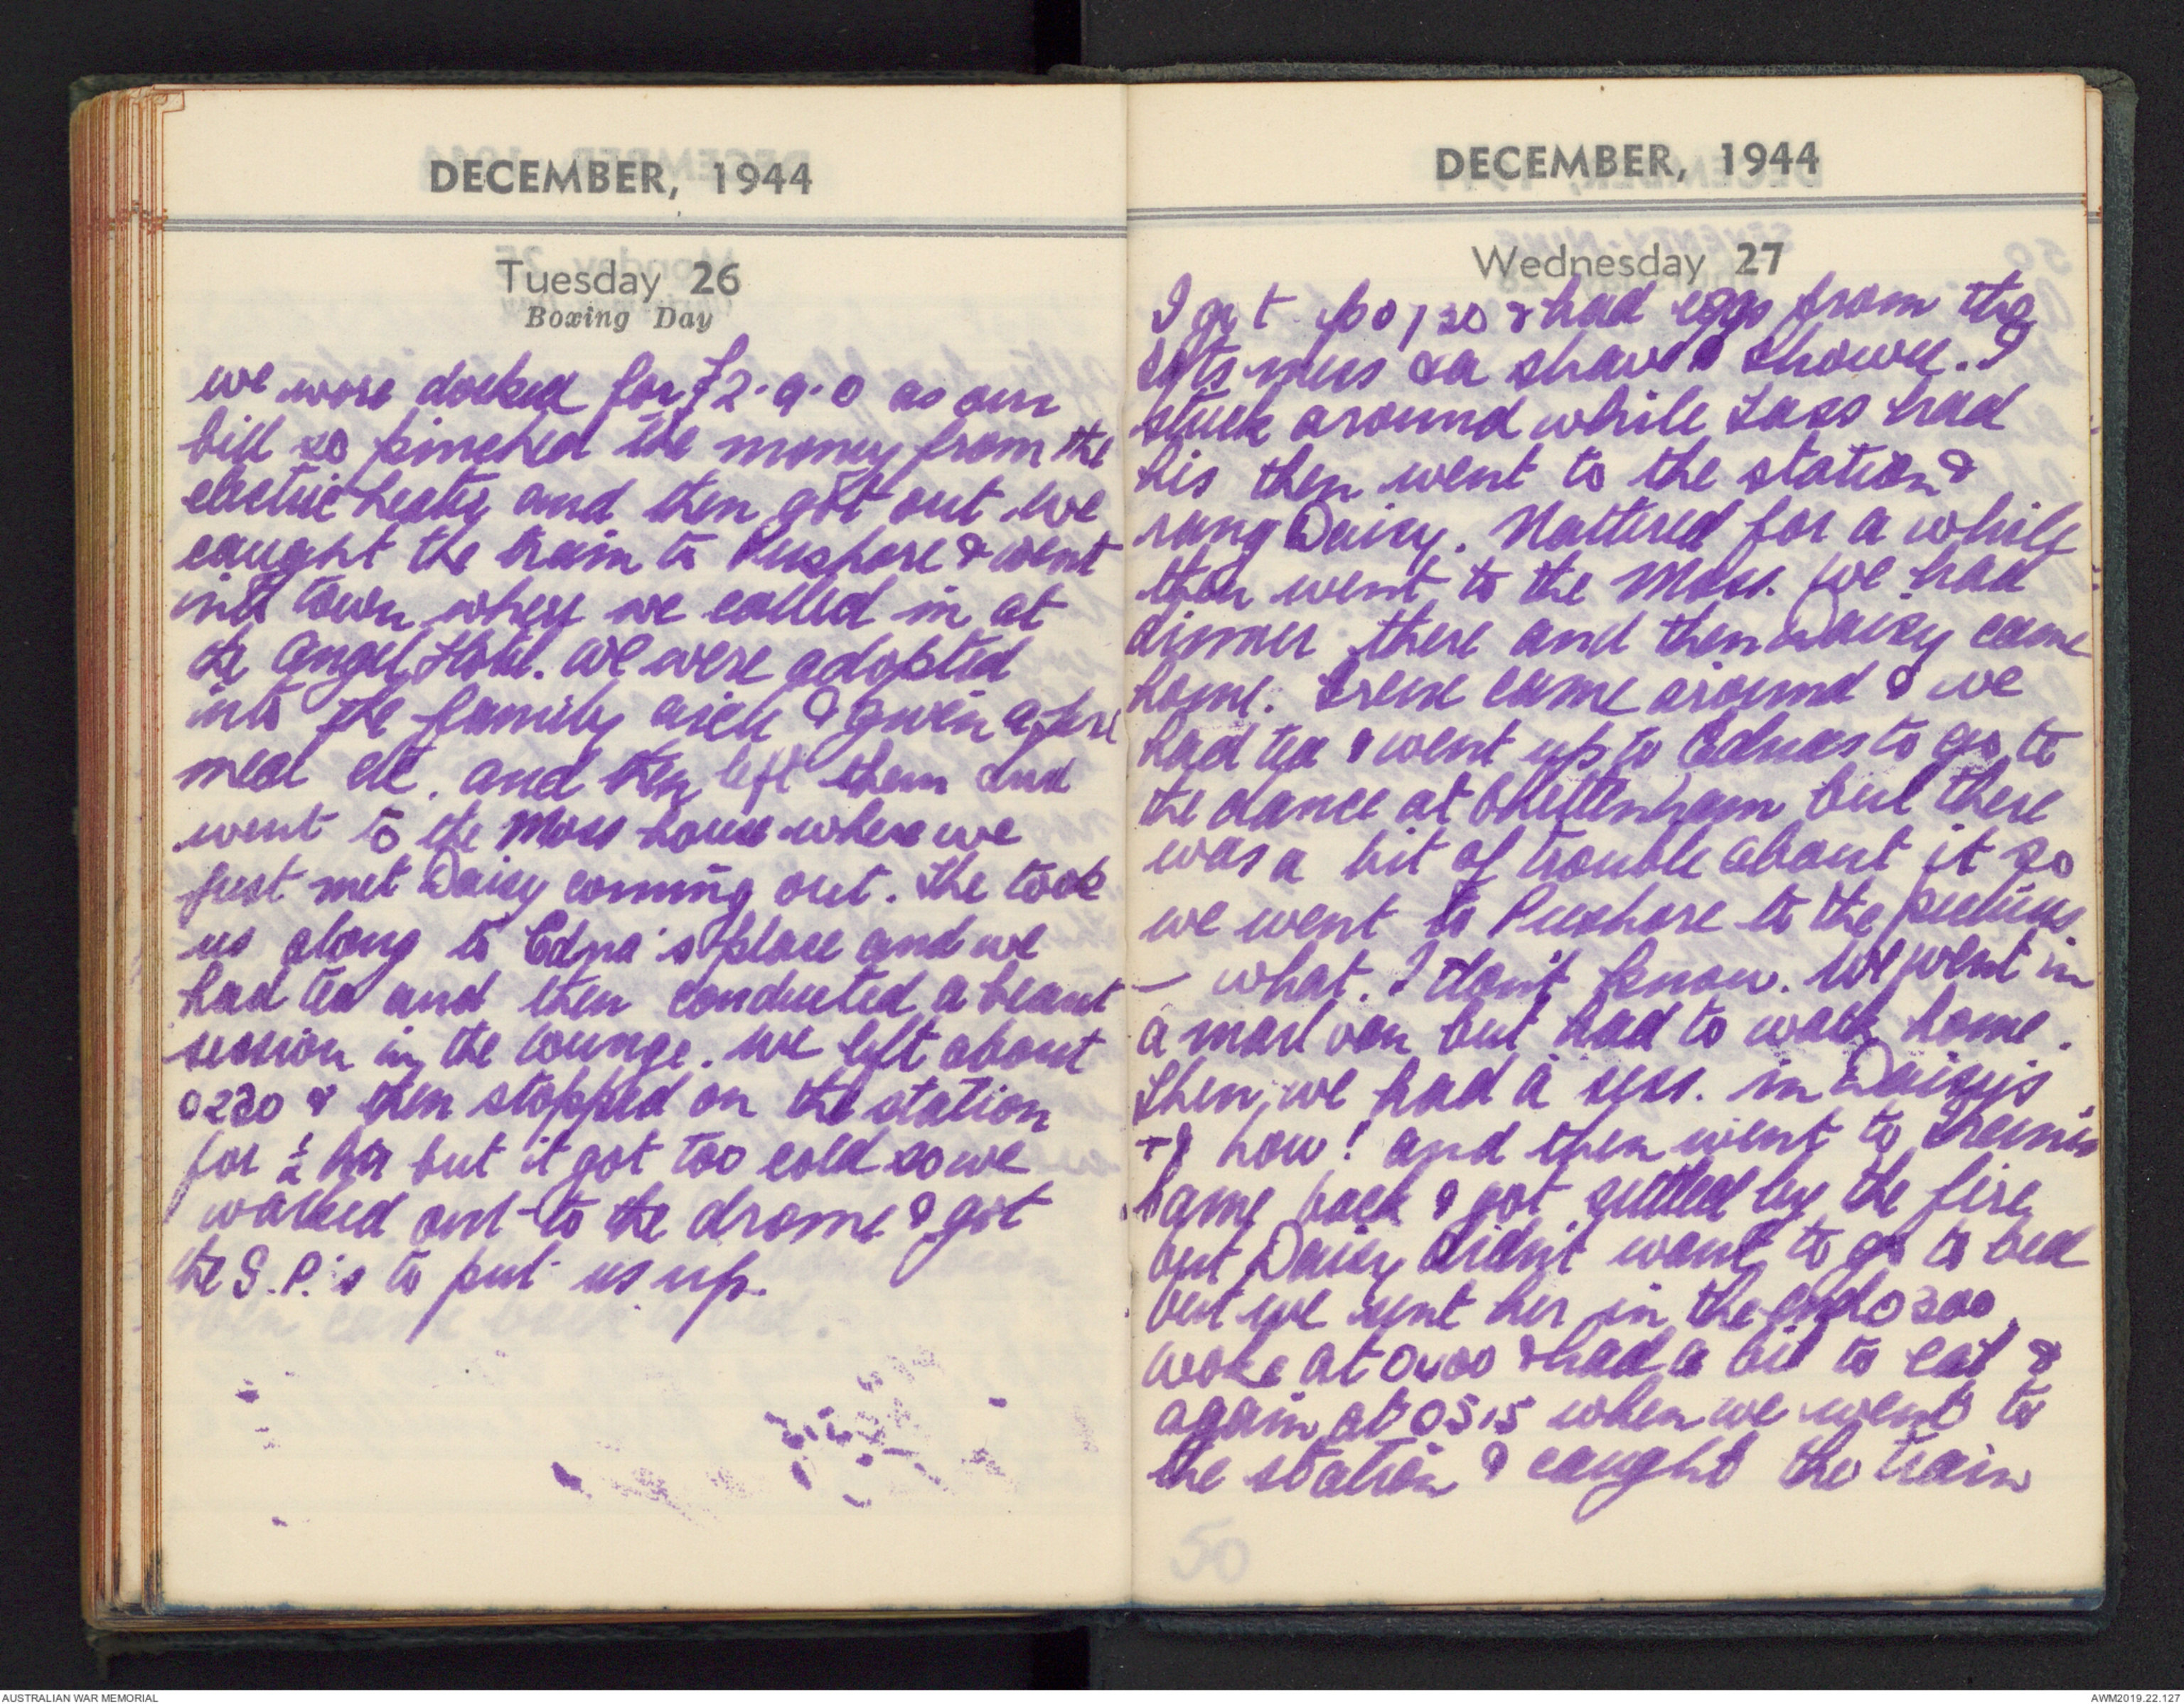 DECEMBER, 1944
Tuesday 26
Boxing Day
we were docked for £2.9.0 as our
bill so pinched the money from the
electric heater and then got out. We
caught the train to Pershore & went
into town where we called in at
the Angel Hotel. We were adopted
into the family circle & given a free
meal etc. and then left them and
went to the Moss house where we
just met Daisy coming out. She took
us along to Edna's place and we
had tea and then conducted a beaut
session in the lounge. We left about
0230 & then stopped on the station
for ½ hr but it got too cold so we
walked out to the drome & got
the S.P.'s to put us up.
DECEMBER, 1944
Wednesday 27
I got & had eggs from the
Sgts mess & a shave & shower. I
stuck around while Lass had
his then went to the station &
rang Daisy. Nattered for a while
then went to the Moss. We had
dinner there and then Daisy came
home. Irene came around & we
had tea & went up to Ednas to go to
the dance at Cheltenham but there
was a bit of trouble about it so
we went to Pershore to the pictures
— what. I don't know. We went in
a mail van but had to walk home.
Then we had a sess. in Daisy's
+ how! and then went to
came back & got settled by the fire
but Daisy didn't want to go to bed
but we sent her in the end 0300
woke at 0400 & had a bit to eat &
again at 0515 when we went to
the station & caught the train
50
AUSTRALIAN WAR MEMORIAL
AWM2019.22.127